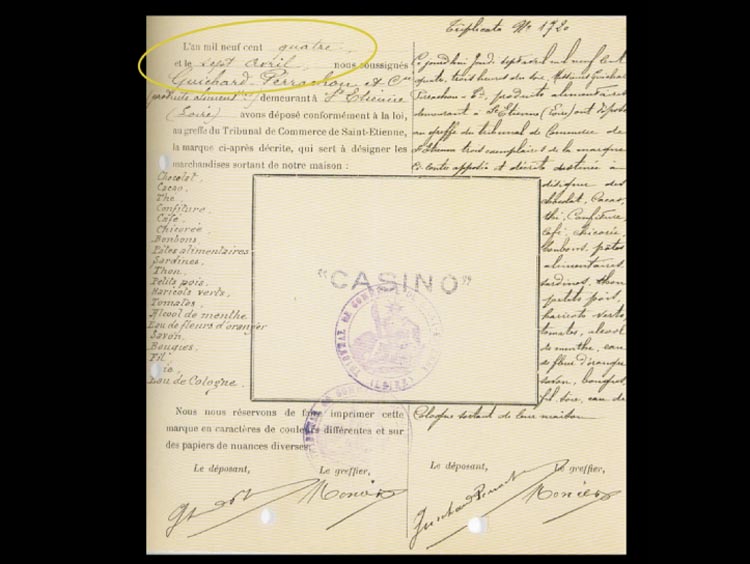 L'an mil neuf cent quatre
et le sept avril nous soussignés
Guichard Perrachon et Cie
produits aliment res demeurant à St Etienne
(Loire) avons déposé conformément à la loi,
au greffe du Tribunal de Commerce de Saint-Etienne,
la marque ci-après décrite, qui sert à désigner les
marchandises sortant de notre maison :
Chocolat.
Cacao.
Thé
Confiture.
Café.
Chicorée.
Bonbons.
Pâtes alimentaires
Sardines.
Thon.
Petits pois.
Haricots verts.
Tomates.
Alcool de menthe.
Eau de fleurs d'oranger
Savon.
Bougies.
Fil.
Eau de Cologne.
"CASINO"
TRIBUNAL DE COMMERCE
(LOIRE)
Nous nous réservons de faire imprimer cette
marque en caractères de couleurs différentes et sur
des papiers de nuances diverses.
Le déposant, Le greffier,
Monier
Triplicata No 1720
Ce jourd'hui Jeudi sept avril mil neuf cent
quatre trois heures du soir, Messieurs Guichard
Perrachon & Cie, produits alimentaires
demeurant à St Etienne (Loire) ont déposé
au greffe du tribunal de Commerce de
St Etienne trois exemplaires de la marque
Ci-contre apposée et décrite destinée à
désigner des
chocolat, Cacao,
thé, Confiture
café, chicorée,
bonbons, pâtes
alimentaires
sardines, thon
petits pois,
haricots verts
tomates, alcool
de menthe, eau
de fleur d'oranger
savon, bougies,
fil, eau de
Cologne sortant de leur maison
Le déposant, Le greffier,
Guichard Perrachon Monier